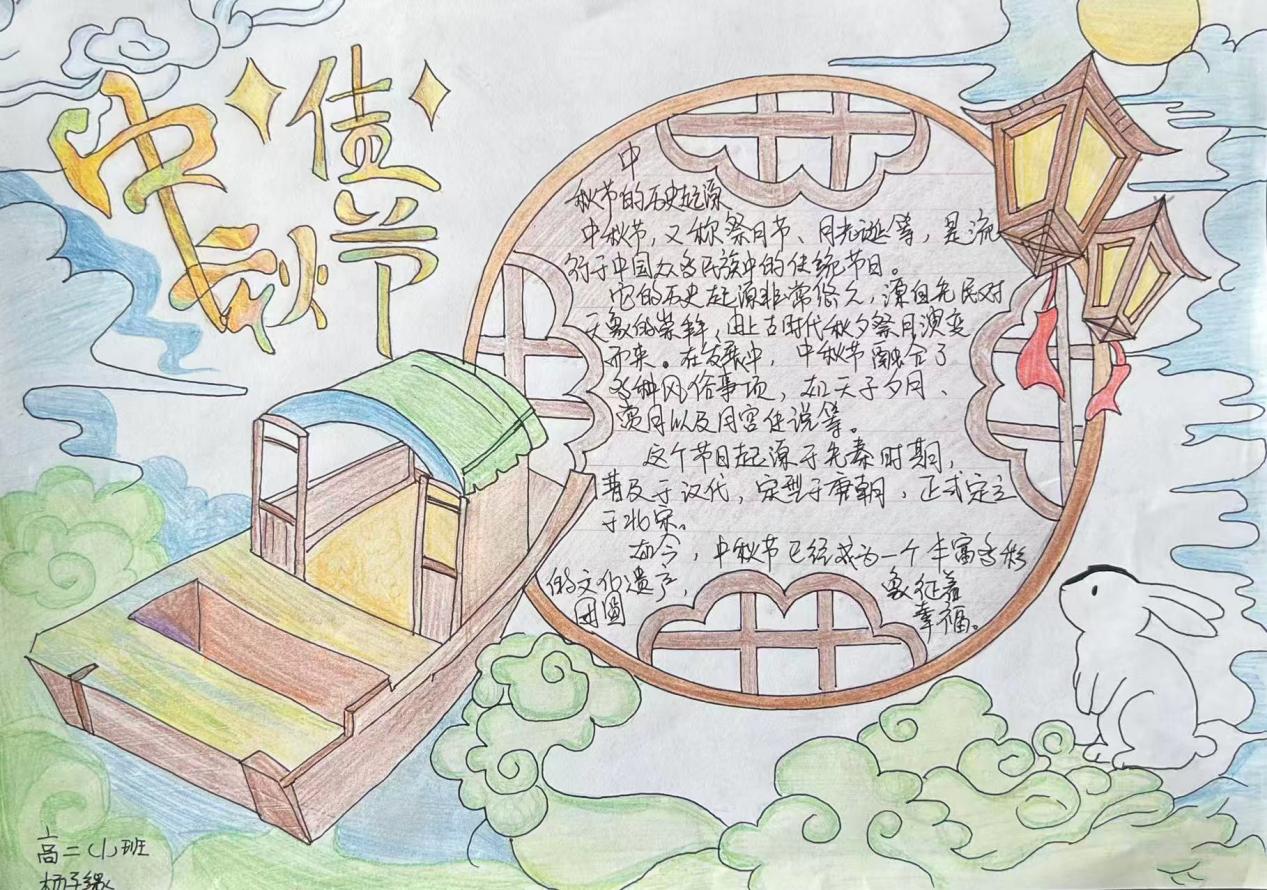 中秋
佳节
中
秋节的历史起源
中秋节，又称祭月节、月光诞等，是流
行于中国众多民族中的传统节日。
它的历史起源非常悠久，源自先民对
天象的崇拜，由上古时代秋夕祭月演变
而来。在发展中，中秋节融合了
多种风俗事项，如天子夕月、
赏月以及月宫传说等。
这个节日起源于先秦时期，
普及于汉代，定型于唐朝，正式定立
于北宋。
如今，中秋节已经成为一个丰富多彩
的文化遗产，象征着
团圆 幸福。
高二（1）班
杨子缘